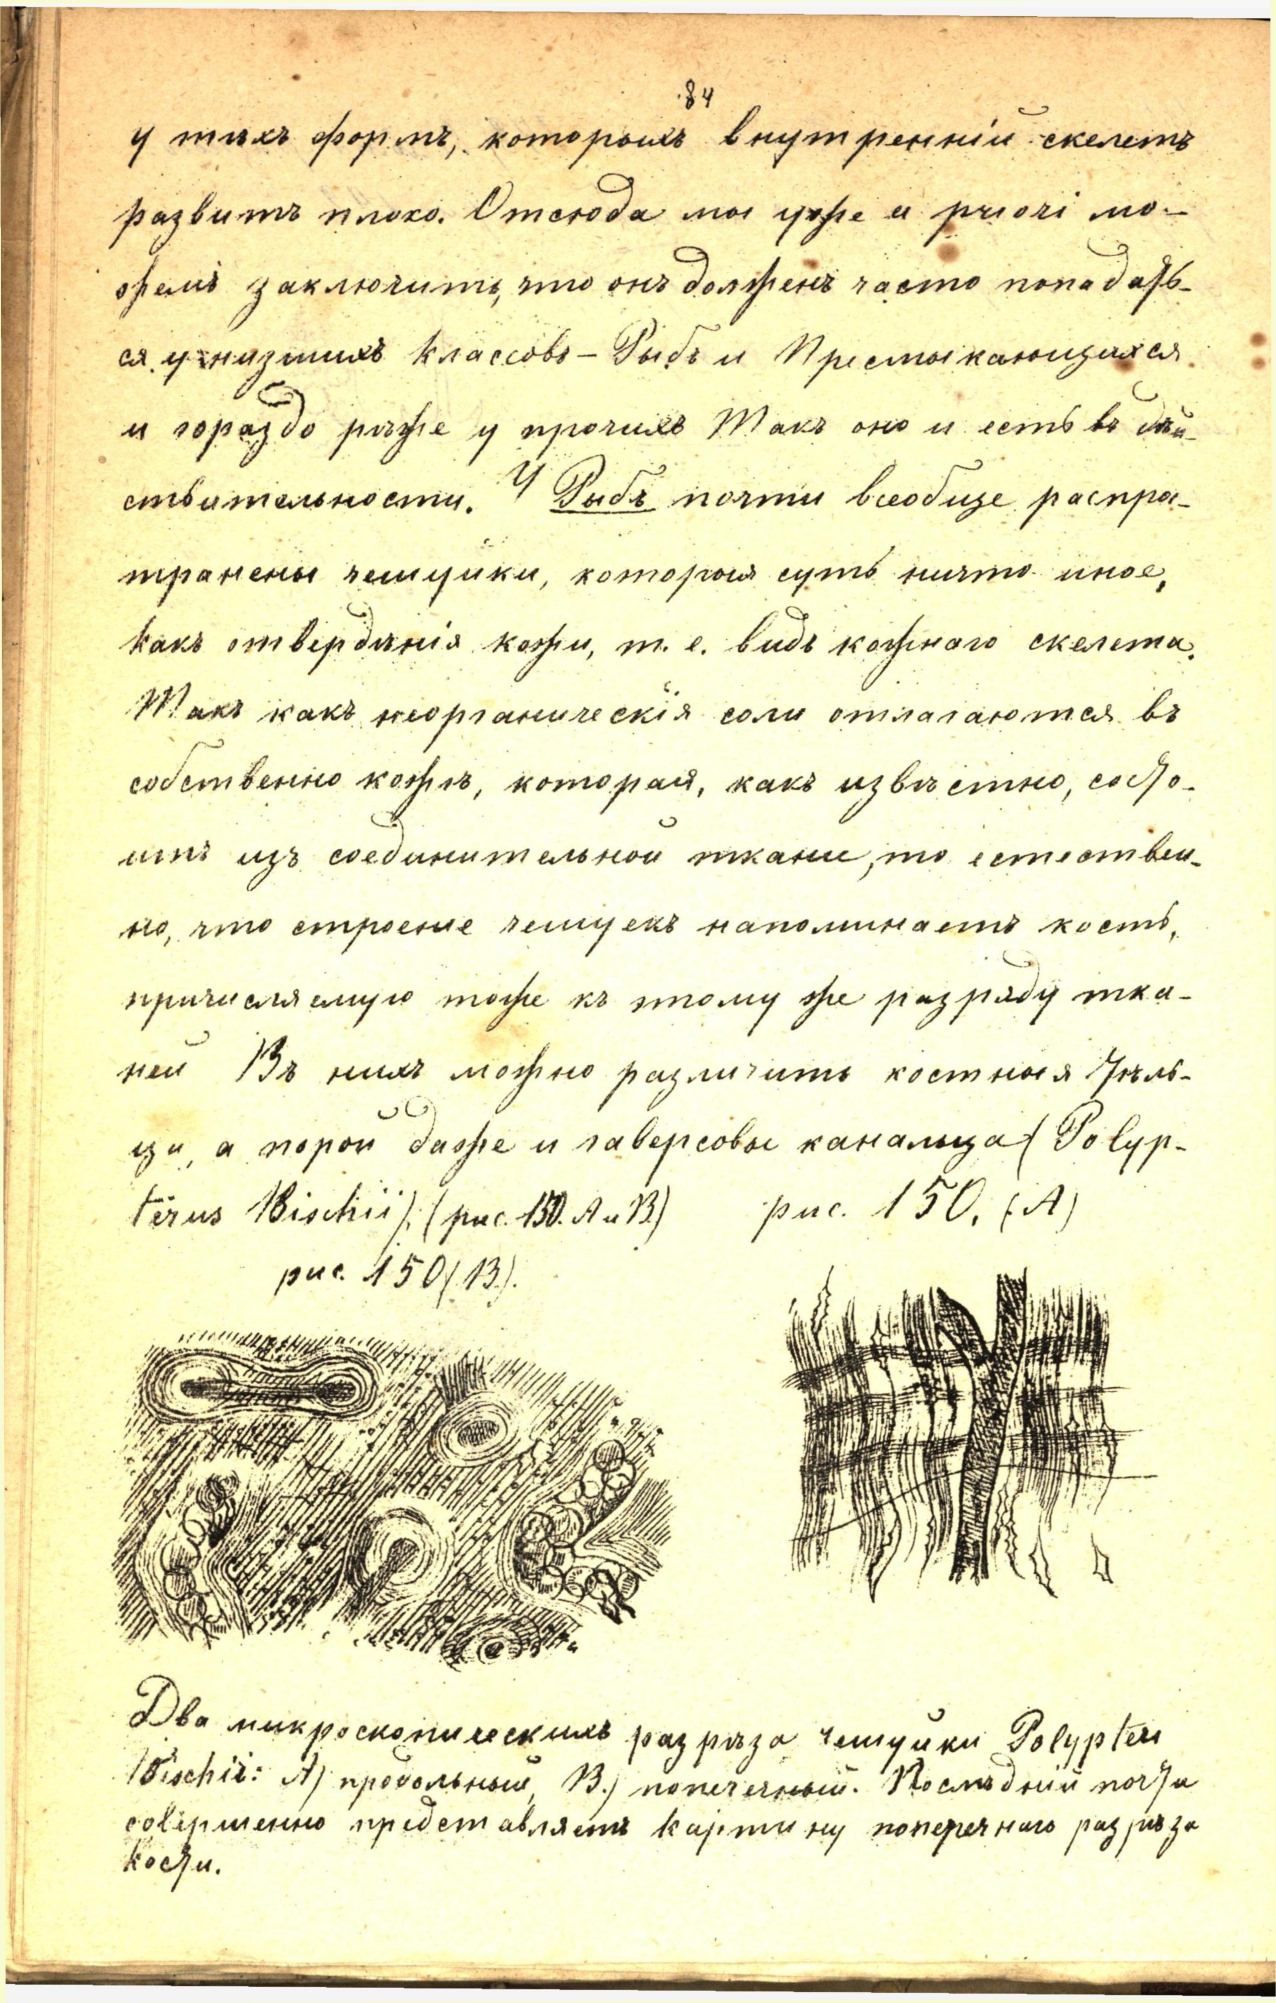 84
у тѣхъ формъ, которыхъ внутренній скелетъ
развитъ плохо. Отсюда мы уже a priori мо-
жемъ заключить, что онъ долженъ часто попадать-
ся у низшихъ классовъ – Рыбъ и Пресмыкающихся
и гораздо рѣже у прочихъ Такъ оно и есть въ дѣй-
ствительности. У Рыбъ почти всеобще распро-
транены чешуйки, которыя суть ничто иное,
какъ отвердѣнія кожи, т. е. видъ кожнаго скелета.
Такъ какъ неорганическія соли отлагаются въ
собственно кожѣ, которая, какъ извѣстно, состо-
итъ изъ соединительной ткани, то естествен-
но, что строение чешуекъ напоминаетъ кость,
причисляемую тоже къ этому же разряду тка-
ней Въ нихъ можно различить костныя тѣль-
ца, а порой даже и гаверсовы канальца (Polyp-
terus Bischii). (рис. 150. А и В)
рис. 150. (А)
рис. 150 (В).
Два микроскопическихъ разрѣза чешуйки Polypteri
Bischii: А) продольный, В.) поперечный. Послѣдній почти
совершенно представляетъ картину поперечнаго разрѣза
кости.